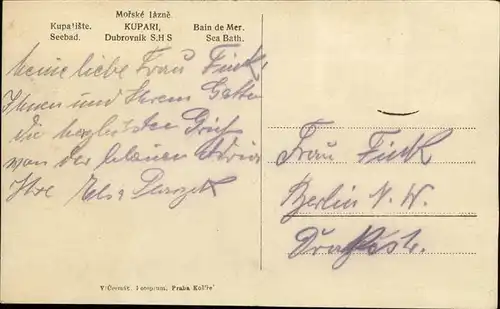 Mořské lázně
Kupalište. KUPARI, Bain de Mer.
Seebad. Dubrovnik S.H S Sea Bath.
Meine liebe Frau Fink,
Ihnen und Ihrem Gatten
die herzlichsten Grüße
von der blauen Adria
Ihre Elsa
Frau Fink
Berlin N. W.
Fotoptum. Praha